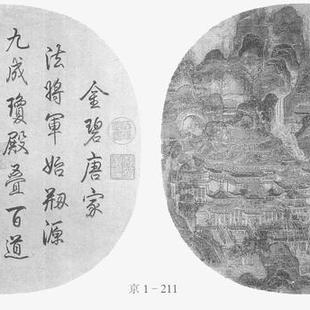 金碧唐家
法將軍始剏源
九成瓊殿疊百道
京 1－211